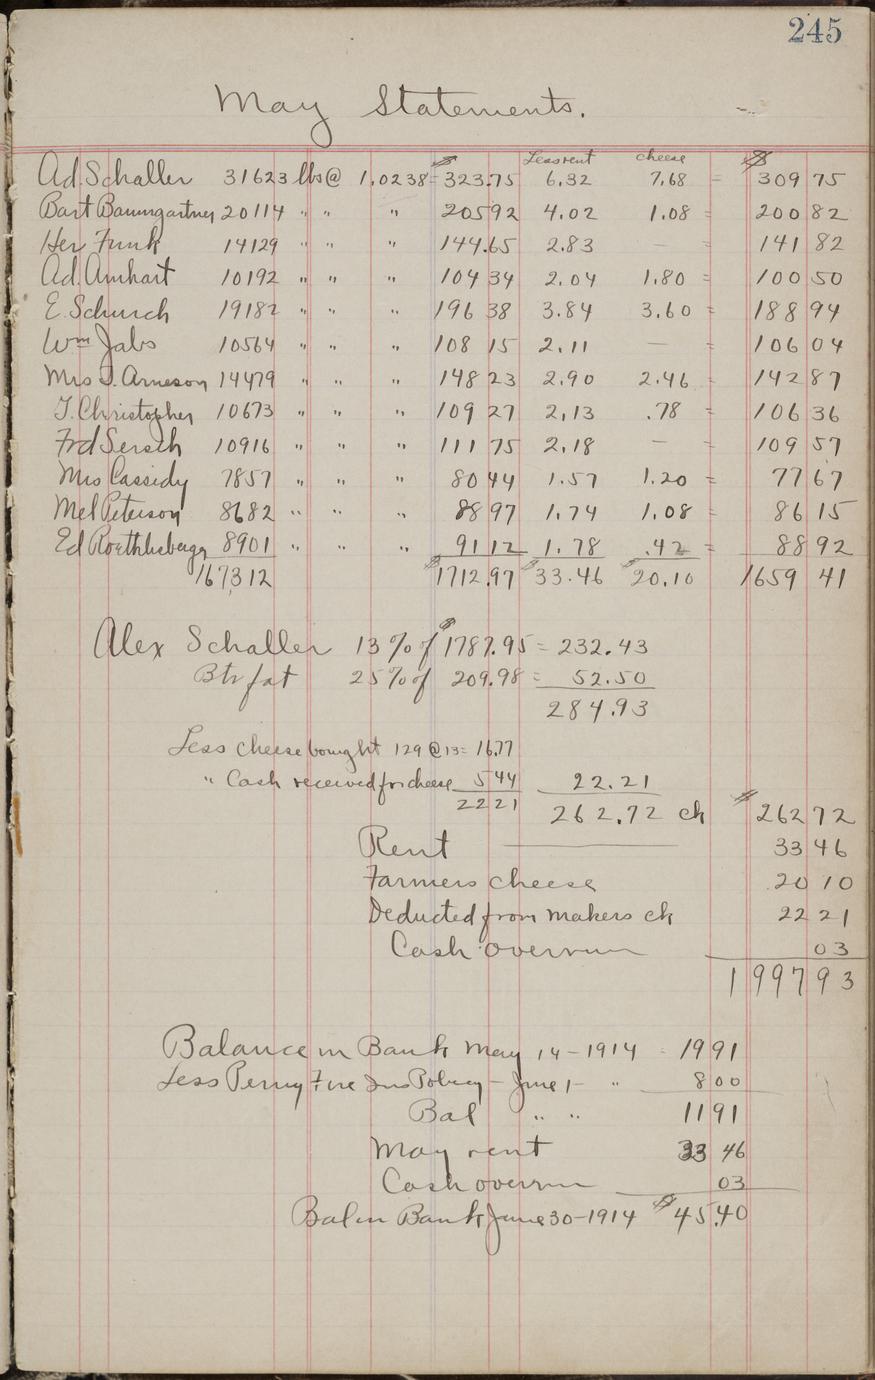 245
May Statements.
Less rent cheese
Ad. Schaller 31623 lbs @ 1.0238 = $323.75 6.32 7.68 = $309 75
Bart Baumgartner 20114 " " " 205 92 4.02 1.08 = 200 82
Her Funk 14129 " " " 144.65 2.83 — = 141 82
Ad. Amhart 10192 " " " 104 34 2.04 1.80 = 100 50
E. Schurch 19182 " " " 196 38 3.84 3.60 = 188 94
Wm Jabs 10564 " " " 108 15 2.11 — = 106 04
Mrs T. Arneson 14479 " " " 148 23 2.90 2.46 = 142 87
T. Christopher 10673 " " " 109 27 2.13 .78 = 106 36
Frd Sersch 10916 " " " 111 75 2.18 — = 109 57
Mrs Cassidy 7857 " " " 80 44 1.57 1.20 = 77 67
Mel Peterson 8682 " " " 88 97 1.74 1.08 = 86 15
Ed Roethlisberger 8901 " " " 91 12 1.78 .42 = 88 92
167312 $1712.97 $33.46 $20.10 1659 41
Alex Schaller 13 % of $1787.95 = 232.43
Btr fat 25 % of 209.98 = 52.50
284.93
Less cheese bought 129 @ 13 = 16.77
" Cash received for cheese 5 44 22.21
22 21 262.72 ck $262 72
Rent 33 46
Farmers cheese 20 10
Deducted from makers ck 22 21
Cash overrun 03
1997 93
Balance in Bank May 14 - 1914 = 19 91
Less Penny Fire Ins Policy - June 1 - " 8 00
Bal " " 11 91
May rent 33 46
Cash overrun 03
Bal in Bank June 30 - 1914 $45.40